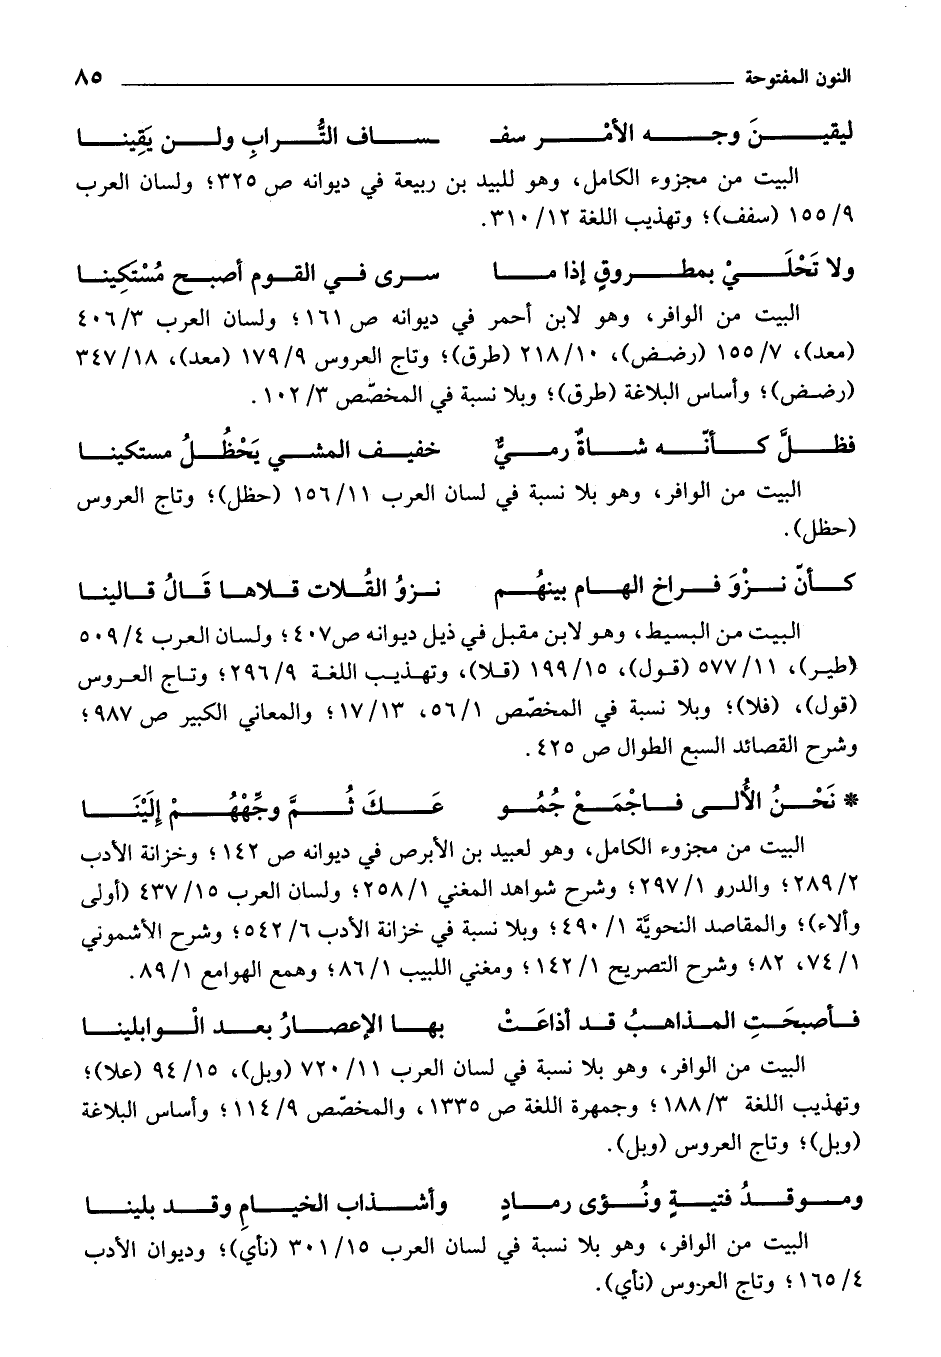 النون المفتوحة ٨٥
ليقينَ وجه الأمْر سفـ ـساف التُّرابِ ولن يَقِينا
البيت من مجزوء الكامل، وهو للبيد بن ربيعة في ديوانه ص ٣٢٥؛ ولسان العرب
٩/ ١٥٥ (سفف)؛ وتهذيب اللغة ١٢/ ٣١٠.
ولا تَحْلَيْ بمطروقٍ إذا ما سرى في القوم أصبح مُسْتَكِينا
البيت من الوافر، وهو لابن أحمر في ديوانه ص ١٦١؛ ولسان العرب ٣/ ٤٠٦
(معد)، ٧/ ١٥٥ (رضض)، ١٠/ ٢١٨ (طرق)؛ وتاج العروس ٩/ ١٧٩ (معد)، ١٨/ ٣٤٧
(رضض)؛ وأساس البلاغة (طرق)؛ وبلا نسبة في المخصّص ٣/ ١٠٢.
فظلَّ كأنّه شاةٌ رميٌّ خفيف المشي يَحْظُلُ مستكينا
البيت من الوافر، وهو بلا نسبة في لسان العرب ١١/ ١٥٦ (حظل)؛ وتاج العروس
(حظل).
كأنّ نزْوَ فراخ الهام بينهُم نزوُ القُلات قلاها قَالُ قالينا
البيت من البسيط، وهو لابن مقبل في ذيل ديوانه ص٤٠٧؛ ولسان العرب ٤/ ٥٠٩
(طير)، ١١/ ٥٧٧ (قول)، ١٥/ ١٩٩ (قلا)، وتهذيب اللغة ٩/ ٢٩٦؛ وتاج العروس
(قول)، (فلا)؛ وبلا نسبة في المخصّص ١/ ٥٦، ١٣/ ١٧؛ والمعاني الكبير ص ٩٨٧؛
وشرح القصائد السبع الطوال ص ٤٢٥.
* نَحْنُ الأُلى فاجْمَعْ جُمُو عَكَ ثُمَّ وجِّهْهُمْ إلَيْنَا
البيت من مجزوء الكامل، وهو لعبيد بن الأبرص في ديوانه ص ١٤٢؛ وخزانة الأدب
٢/ ٢٨٩؛ والدرو ١/ ٢٩٧؛ وشرح شواهد المغني ١/ ٢٥٨؛ ولسان العرب ١٥/ ٤٣٧ (أولى
وألاء)؛ والمقاصد النحويَّة ١/ ٤٩٠؛ وبلا نسبة في خزانة الأدب ٦/ ٥٤٢؛ وشرح الأشموني
١/ ٧٤، ٨٢؛ وشرح التصريح ١/ ١٤٢؛ ومغني اللبيب ١/ ٨٦؛ وهمع الهوامع ١/ ٨٩.
فأصبحَتِ المذاهبُ قد أذاعَتْ بها الإعصارُ بعد الْوابلينا
البيت من الوافر، وهو بلا نسبة في لسان العرب ١١/ ٧٢٠ (وبل)، ١٥/ ٩٤ (علا)؛
وتهذيب اللغة ٣/ ١٨٨؛ وجمهرة اللغة ص ١٣٣٥، والمخصّص ٩/ ١١٤؛ وأساس البلاغة
(وبل)؛ وتاج العروس (وبل).
وموقدُ فتيةٍ ونُؤى رمادٍ وأشذاب الخيامِ وقد بلينا
البيت من الوافر، وهو بلا نسبة في لسان العرب ١٥/ ٣٠١ (نأي)؛ وديوان الأدب
٤/ ١٦٥؛ وتاج العروس (نأي).